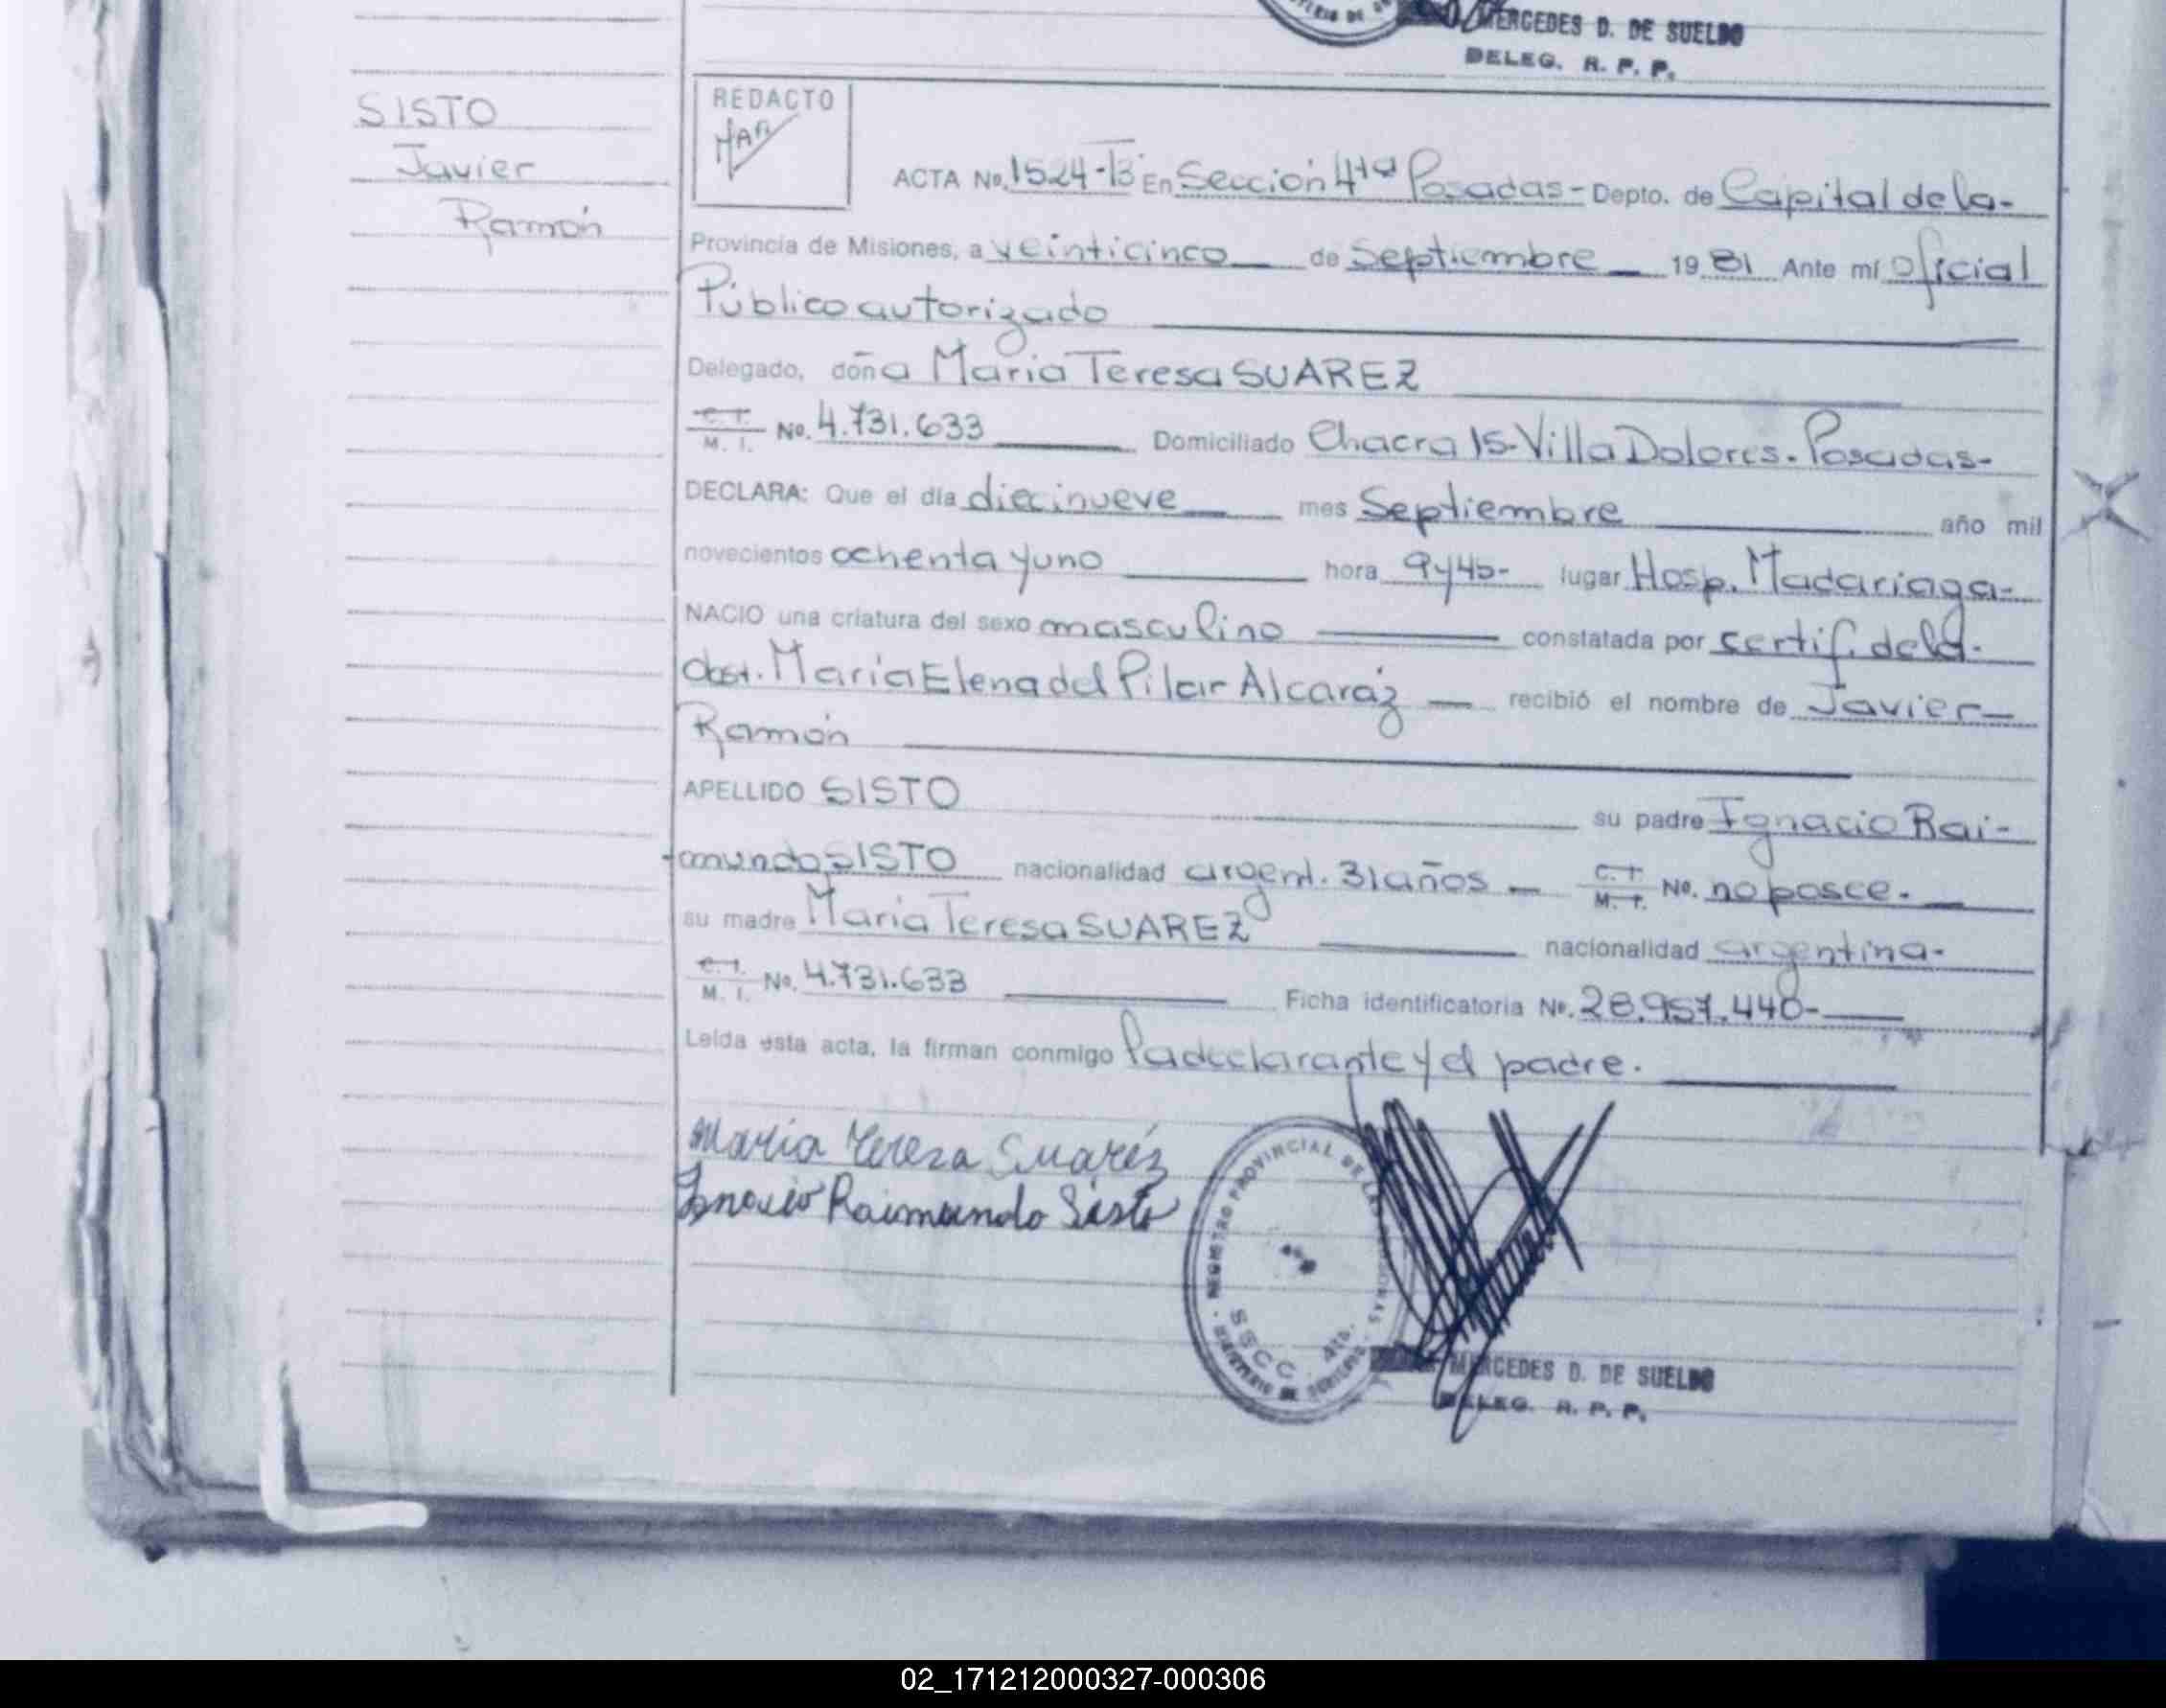 MERCEDES D. DE SUELDO
DELEG. R. P. P.
SISTO
Javier
Ramón
REDACTO
ACTA No. 1524-13 En Sección 4ta Posadas- Depto. de Capital de la-
Provincia de Misiones, a veinticinco de Septiembre 19 81 Ante mí Oficial
Público autorizado
Delegado, doña María Teresa SUAREZ
C. I.
M. I. No. 4.731.633 Domiciliado Chacra 15-Villa Dolores. Posadas-
DECLARA: Que el día diecinueve mes Septiembre año mil
novecientos ochenta y uno hora 9y45- lugar Hosp. Madariaga-
NACIO una criatura del sexo masculino constatada por certif. de la-
obst. María Elena del Pilar Alcaráz recibió el nombre de Javier-
Ramón
APELLIDO SISTO su padre Ignacio Rai-
mundo SISTO nacionalidad argent. 31 años - C. I.
M. I. No. no posee.
su madre María Teresa SUAREZ nacionalidad argentina-
C. I.
M. I. No. 4.731.633 Ficha identificatoria No. 28.957.440-
Leída esta acta, la firman conmigo la declarante y el padre.
Maria Tereza Suaréz
Ignacio Raimundo Sisto
REGISTRO PROVINCIAL DE LAS PERSONAS
SSCC 4ta.
MINISTERIO DE GOBIERNO
MERCEDES D. DE SUELDO
DELEG. R. P. P.
02_171212000327-000306